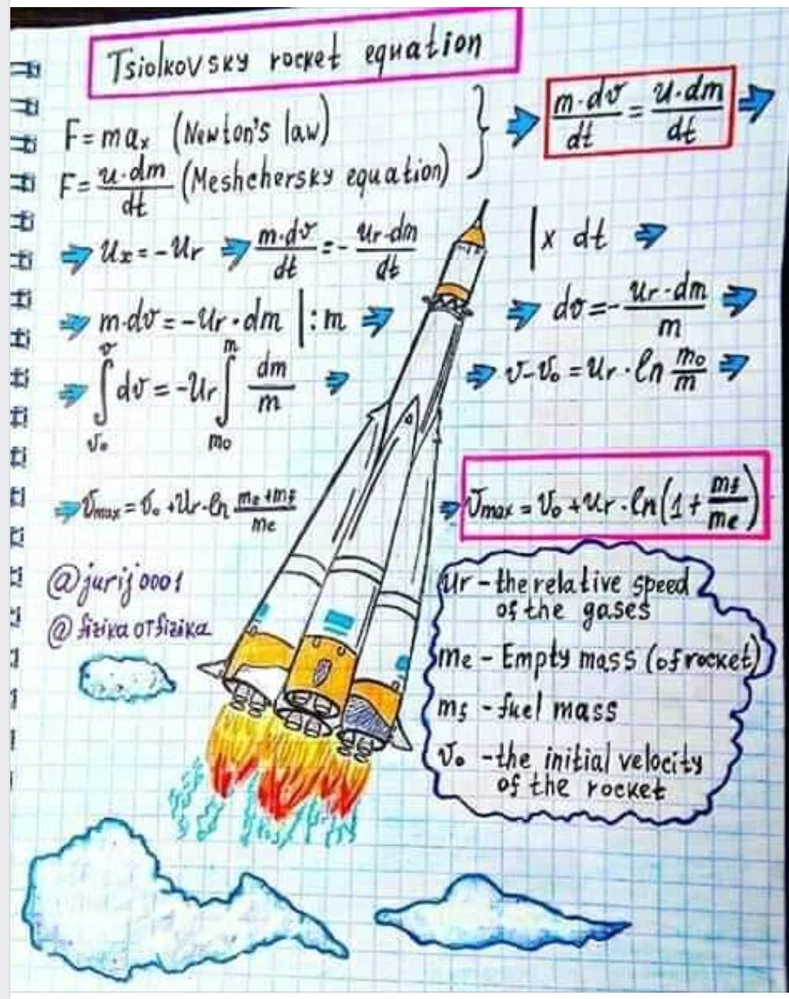 Tsiolkovsky rocket equation
F = maₓ (Newton's law)
F = u·dm/dt (Meshchersky equation)
} ⇒ m·dv/dt = u·dm/dt ⇒
⇒ uₓ = -uᵣ ⇒ m·dv/dt = - uᵣ·dm/dt | x dt ⇒
⇒ m·dv = -uᵣ·dm |:m ⇒ ⇒ dv = - uᵣ·dm/m ⇒
⇒ ∫ᵥ₀ᵛ dv = -uᵣ ∫ₘ₀ᵐ dm/m ⇒ ⇒ v-v₀ = uᵣ·ln m₀/m ⇒
⇒ vmax = v₀ + uᵣ·ln (me+mf)/me ⇒ vmax = v₀ + uᵣ·ln(1 + mf/me)
@jurij0001
@fizika OTfizika
ur - the relative speed
of the gases
me - Empty mass (of rocket)
mf - fuel mass
v₀ - the initial velocity
of the rocket